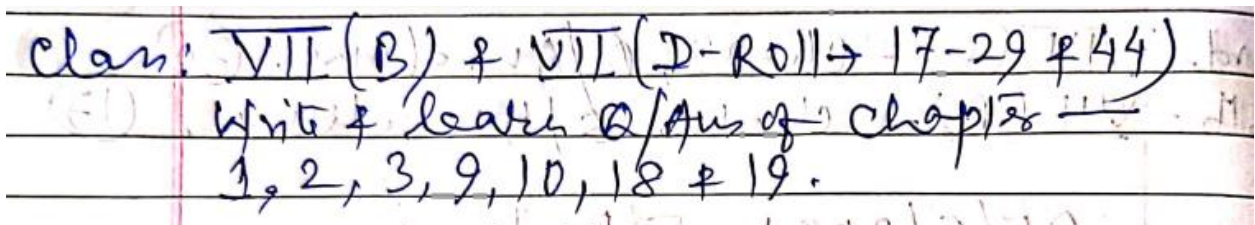 Class: VII (B) & VII (D-Roll→ 17-29 & 44)
Write & learn Q/Ans of chapter —
1, 2, 3, 9, 10, 18 & 19.